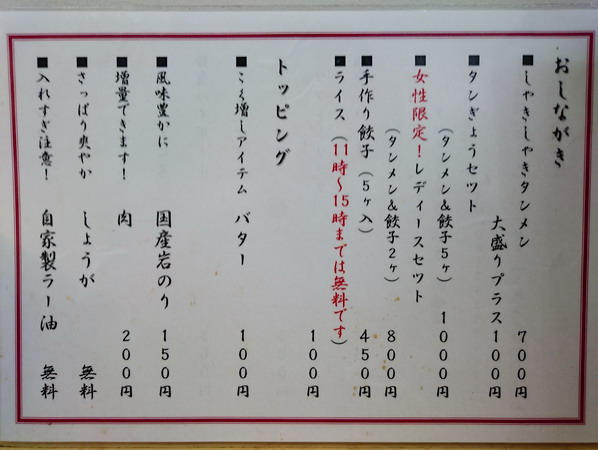 おしながき
■しゃきしゃきタンメン 700円
大盛りプラス100円
■タンぎょうセット
(タンメン&餃子5ヶ) 1000円
■女性限定!レディースセット
(タンメン&餃子2ヶ) 800円
■手作り餃子(5ヶ入) 450円
■ライス(11時~15時までは無料です)
100円
トッピング
■こく増しアイテム バター 100円
■風味豊かに 国産岩のり 150円
■増量できます! 肉 200円
■さっぱり爽やか しょうが 無料
■入れすぎ注意! 自家製ラー油 無料